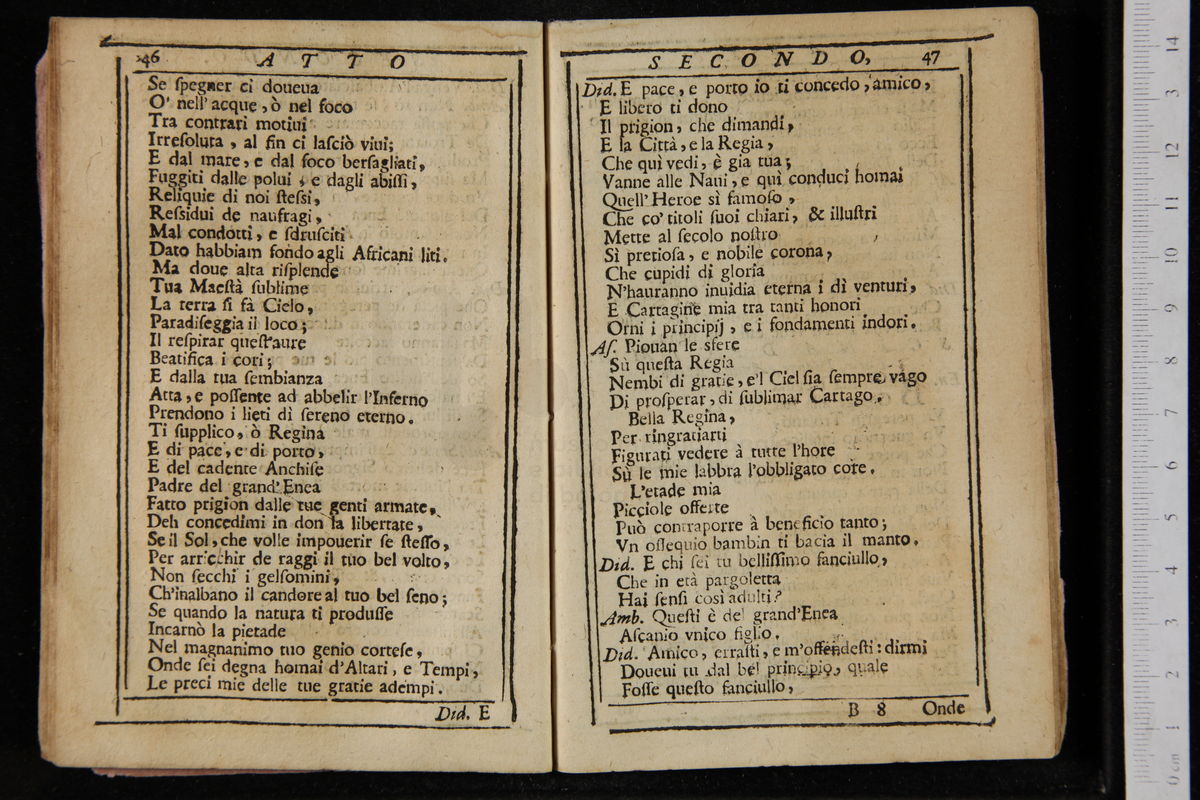 46 ATTO
Se ſpegner ci doueua
O' nell'acque, ò nel foco
Tra contrari motiui
Irreſoluta, al fin ci laſciò viui;
E dal mare, e dal foco berſagliati,
Fuggiti dalle polui, e dagli abiſſi,
Reliquie di noi ſteſsi,
Reſsidui de naufragi,
Mal condotti, e ſdruſciti
Dato habbiam fondo agli Africani liti.
Ma doue alta riſplende
Tua Maeſtà ſublime
La terra ſi fà Cielo,
Paradiſeggia il loco;
Il reſpirar queſt'aure
Beatifica i cori;
E dalla tua ſembianza
Atta, e poſſente ad abbelir l'Inferno
Prendono i lieti dì ſereno eterno.
Ti ſupplico, ò Regina
E di pace, e di porto,
E del cadente Anchiſe
Padre del grand'Enea
Fatto prigion dalle tue genti armate,
Deh concedimi in don la libertate,
Se il Sol, che volle impouerir ſe ſteſſo,
Per arricchir de raggi il tuo bel volto,
Non ſecchi i gelſomini,
Ch'inalbano il candore al tuo bel ſeno;
Se quando la natura ti produſſe
Incarnò la pietade
Nel magnanimo tuo genio corteſe,
Onde ſei degna homai d'Altari, e Tempi,
Le preci mie delle tue gratie adempi.
Did. E
SECONDO, 47
Did. E pace, e porto io ti concedo, amico,
E libero ti dono
Il prigion, che dimandi,
E la Città, e la Regia,
Che quì vedi, è gia tua;
Vanne alle Naui, e quì conduci homai
Quell'Heroe sì famoſo,
Che co' titoli ſuoi chiari, & illuſtri
Mette al ſecolo noſtro
Sì pretioſa, e nobile corona,
Che cupidi di gloria
N'hauranno inuidia eterna i dì venturi,
E Cartagine mia tra tanti honori
Orni i principij, e i fondamenti indori.
Aſ. Piouan le sfere
Sù queſta Regia
Nembi di gratie, e'l Ciel ſia ſempre vago
Di proſperar, di ſublimar Cartago.
Bella Regina,
Per ringratiarti
Figurati vedere à tutte l'hore
Sù le mie labbra l'obbligato core.
L'etade mia
Picciole offerte
Può contraporre à beneficio tanto;
Vn oſſequio bambin ti bacia il manto.
Did. E chi ſei tu belliſſimo fanciullo,
Che in età pargoletta
Hai ſenſi così adulti?
Amb. Queſti è del grand'Enea
Aſcanio vnico figlio.
Did. Amico, erraſti, e m'offendeſti: dirmi
Doueui tu dal bel principio, quale
Foſſe queſto fanciullo,
B 8 Onde
14
13
12
11
10
9
8
7
6
5
4
3
2
1
0 cm